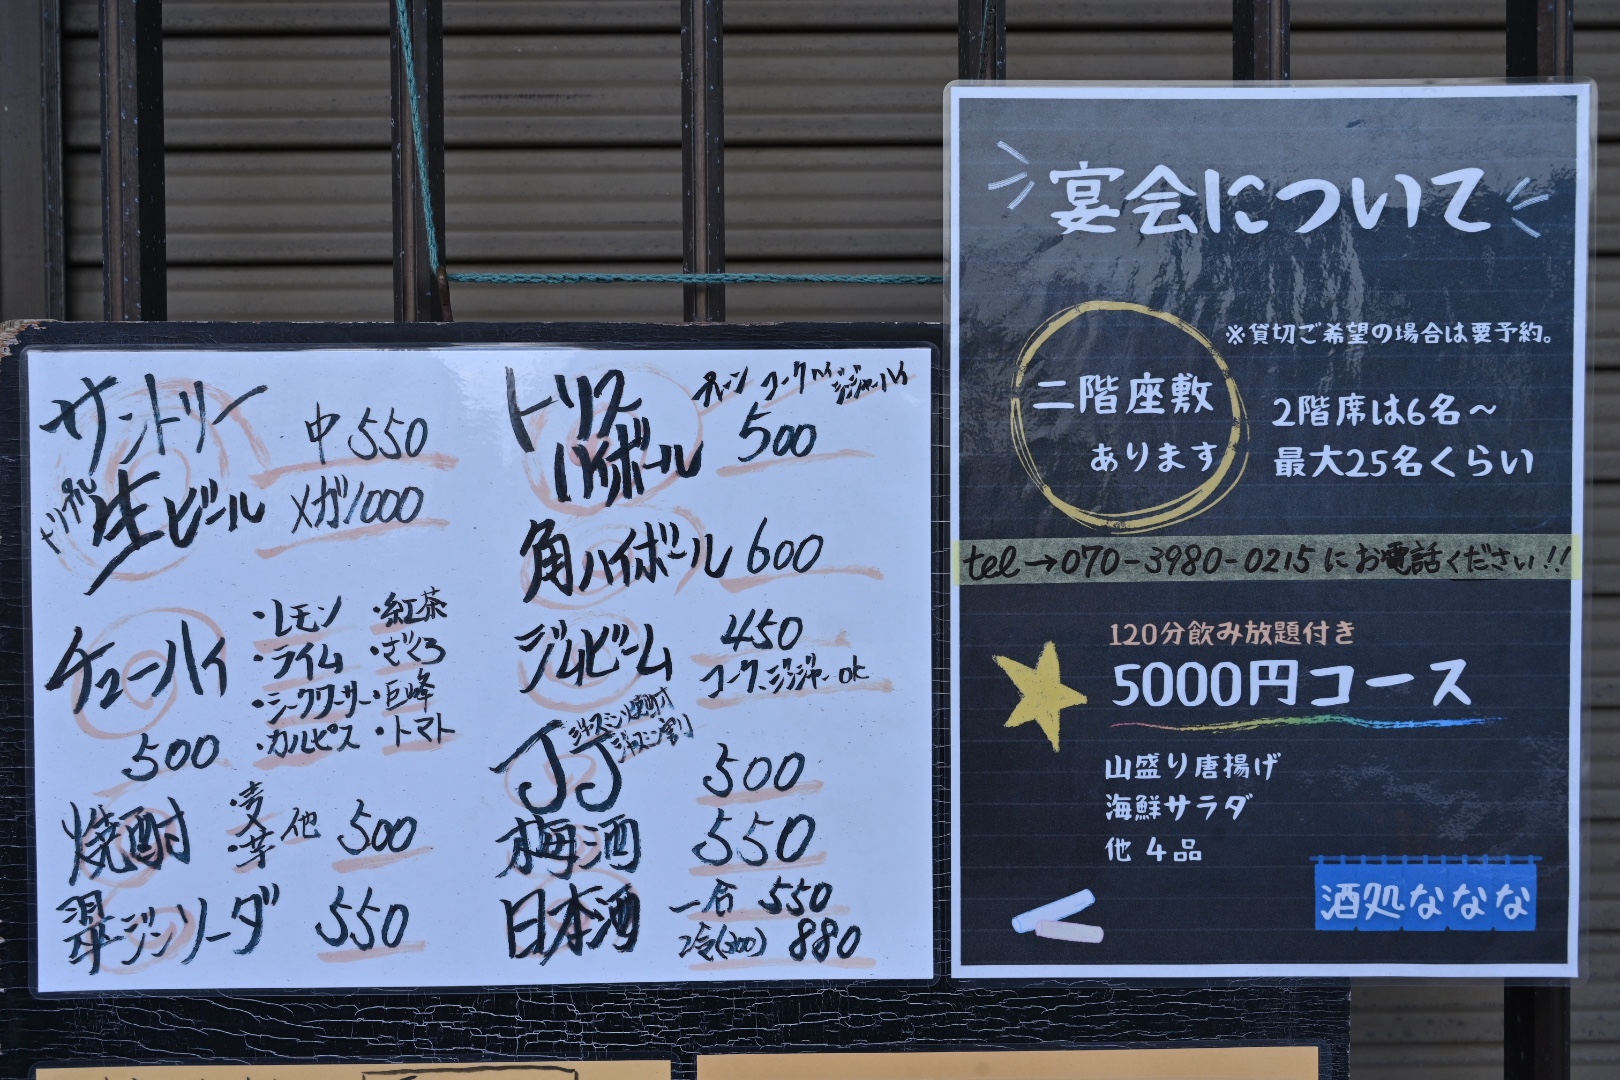 サントリー
トリプル生ビール
中 550
メガ 1000
チューハイ
500
・レモン ・紅茶
・ライム ・ざくろ
・シークワーサー ・巨峰
・カルピス ・トマト
焼酎
・麦
・芋
他
500
翠ジンソーダ 550
トリス
ハイボール
プレーン コークハイ ジンジャーハイ
500
角ハイボール 600
ジムビーム 450
コーク、ジンジャー ok
JJ
ジャスミン焼酎
ジャスミン割り
500
梅酒 550
日本酒 一合 550
2合(300) 880
宴会について
※貸切ご希望の場合は要予約。
二階座敷
あります
2階席は6名～
最大25名くらい
tel→070-3980-0215 にお電話ください!!
120分飲み放題付き
5000円コース
山盛り唐揚げ
海鮮サラダ
他 4品
酒処ななな